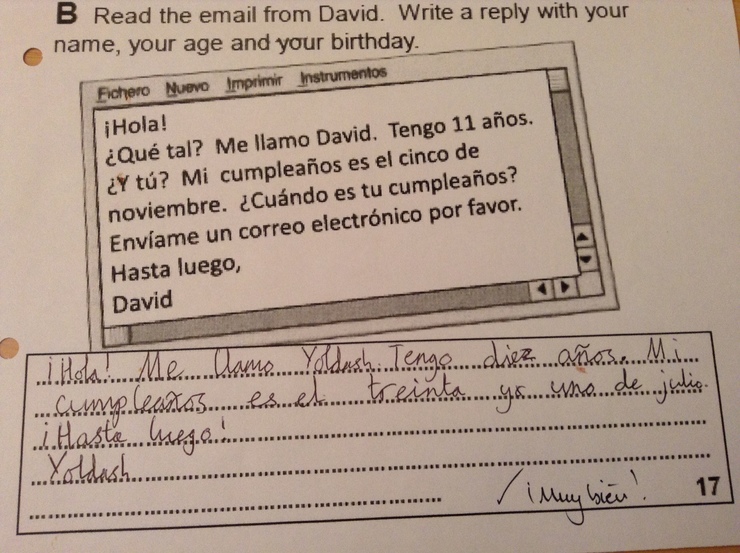 B Read the email from David. Write a reply with your
name, your age and your birthday.
Fichero Nuevo Imprimir Instrumentos
¡Hola!
¿Qué tal? Me llamo David. Tengo 11 años.
¿Y tú? Mi cumpleaños es el cinco de
noviembre. ¿Cuándo es tu cumpleaños?
Envíame un correo electrónico por favor.
Hasta luego,
David
¡Hola! Me llamo Yoldash. Tengo diez años. Mi
cumpleaños es el treinta y uno de julio.
¡Hasta luego!
Yoldash
¡Muy bien!
17